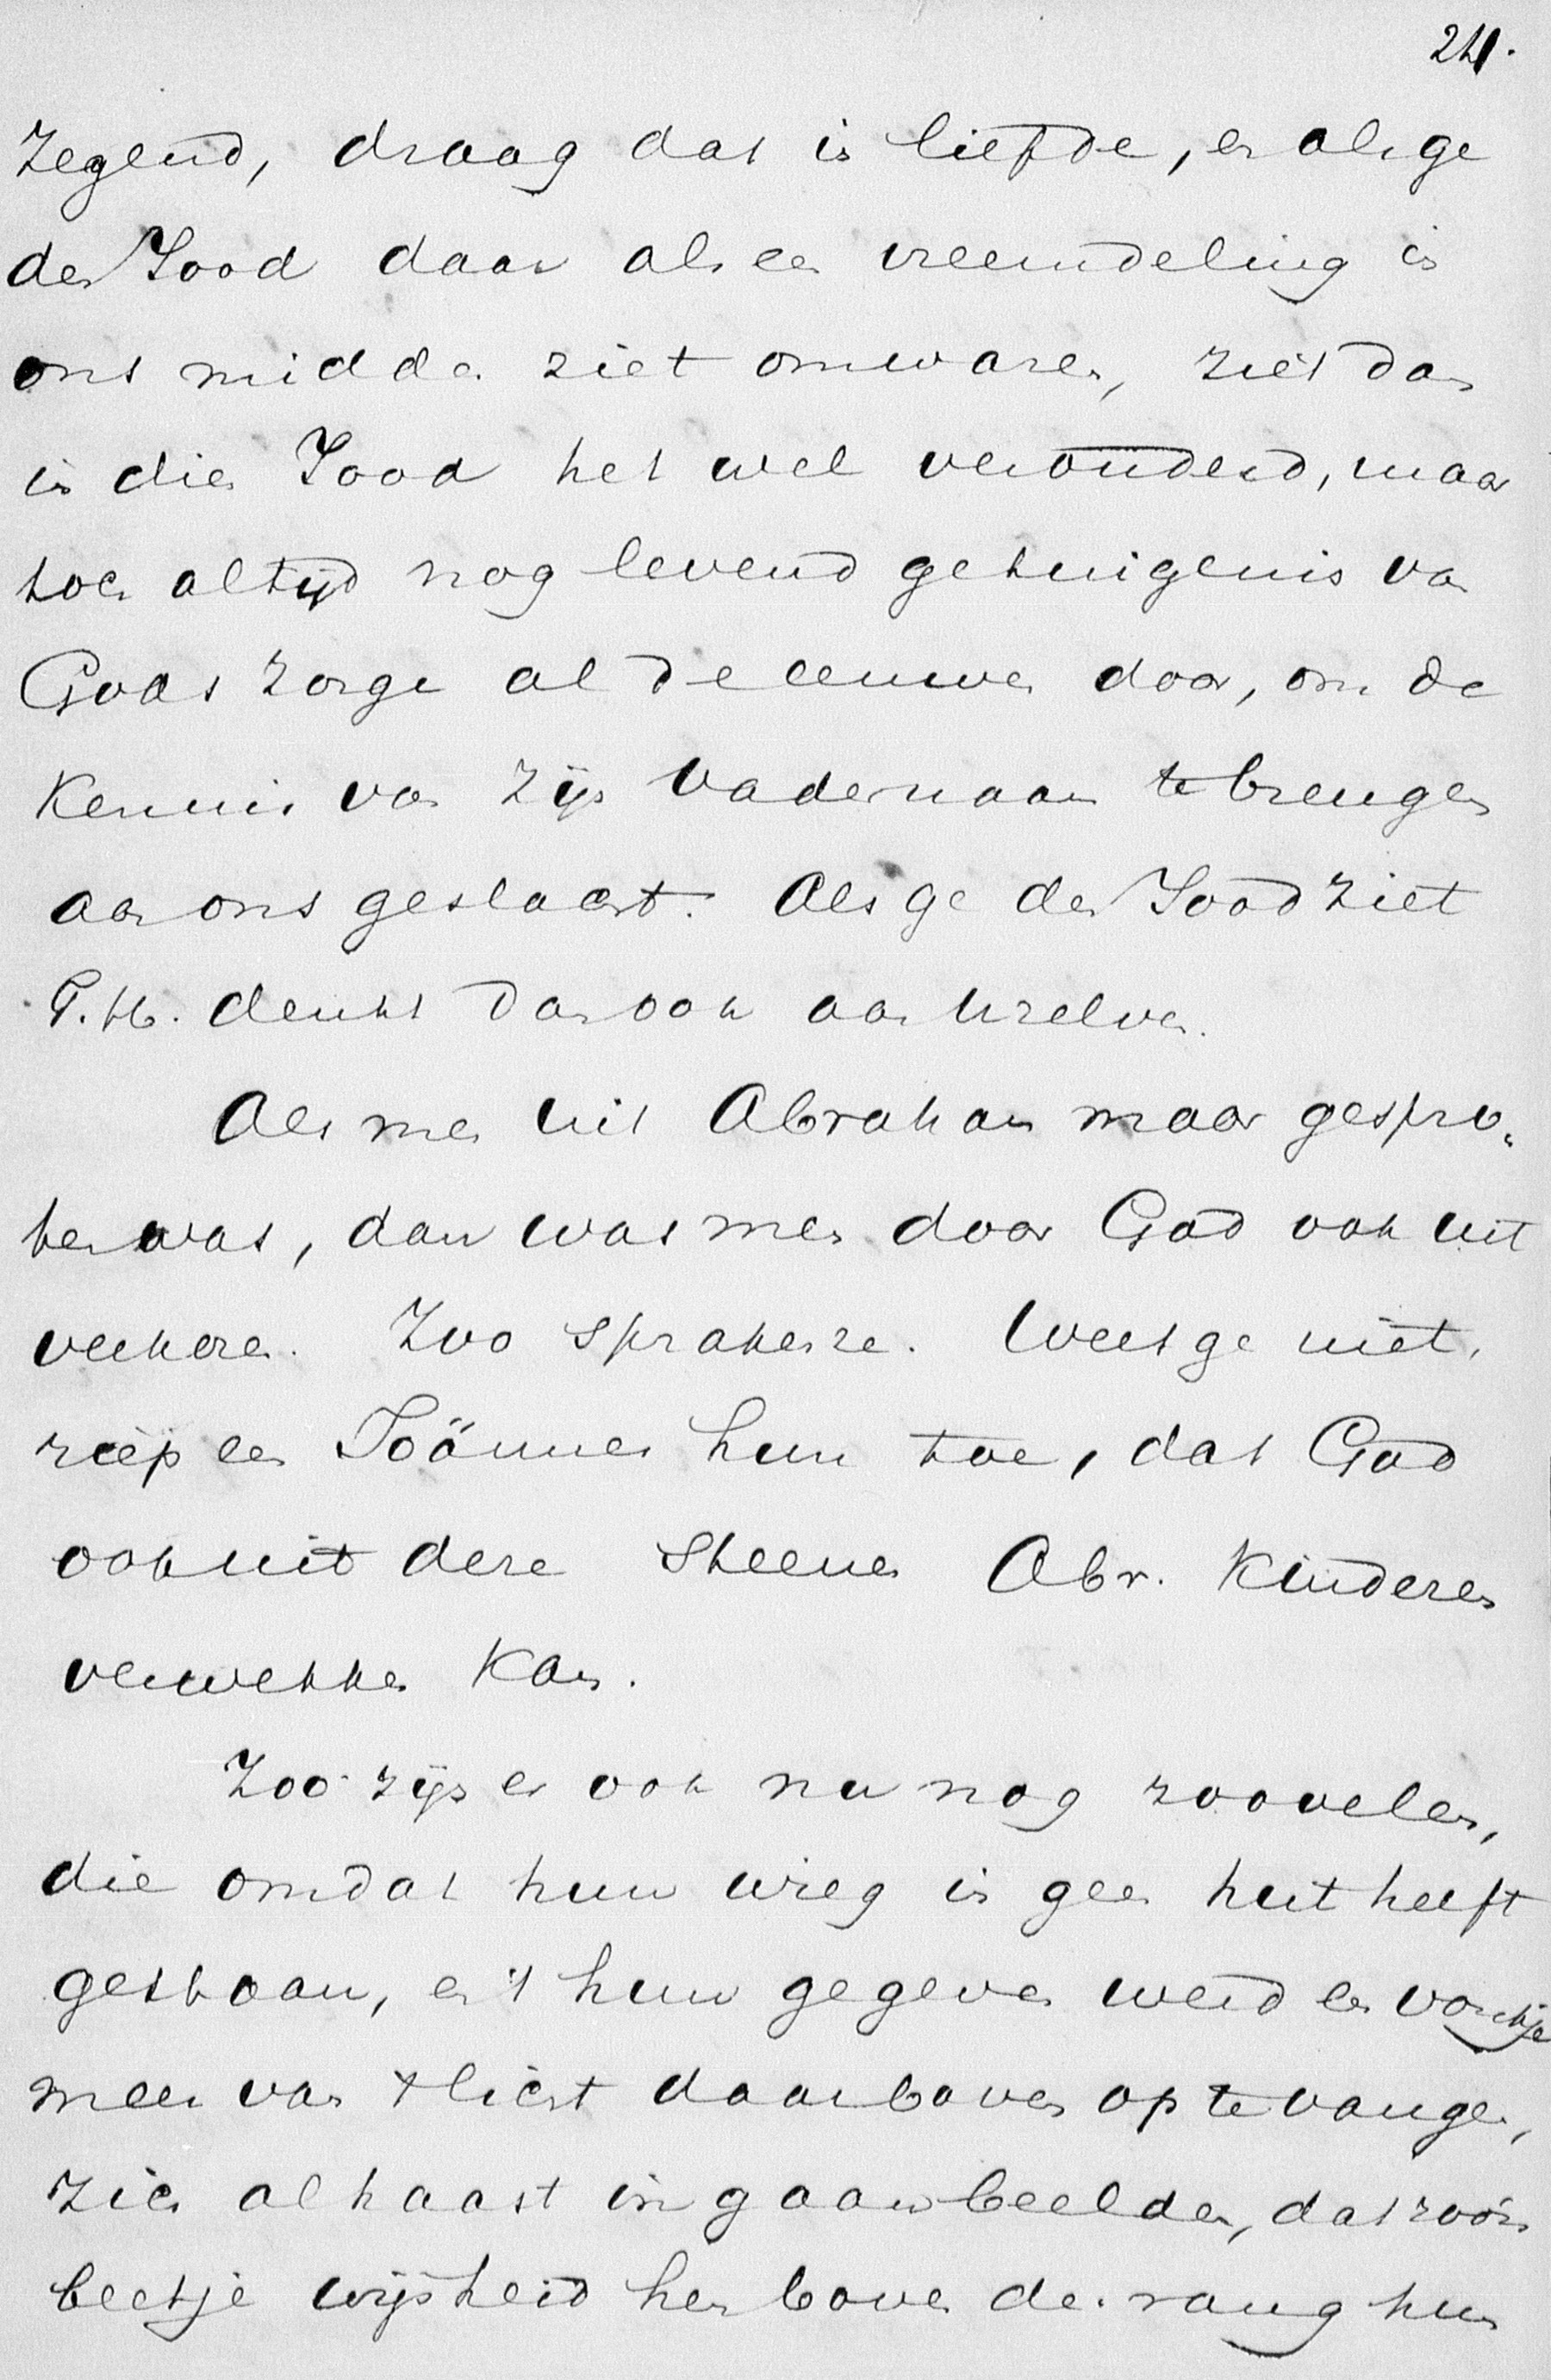 24.
zegend, draag dat is liefde, en als ge
den Jood daar als een vreemdeling in
ons midden ziet omwaren, ziet dan
in dien Jood het wel verouderd, maar
toch altijd nog levend getuigenis van
Gods zorge al de eeuwen door, om de
kennis van Zijn Vadernaam te brengen
aan ons geslacht. Als ge den Jood ziet
G. H. denkt dan ook aan Uzelven.
Als men uit Abraham maar gespro„
ten was, dan was men door God ook uit
verkoren. Zoo spraken ze. Weet ge niet,
riep een Joännes hun toe, dat God
ook uit deze steenen Abr. kinderen
verwekken kan.
Zoo zijn er ook nu nog zoovelen,
die omdat hun wieg in geen hut heeft
gestaan, en 't hun gegeven werd een vonkje
meer van 't licht daarboven op te vangen,
zich alhaast in gaan beelden, dat zoo'n
beetje wijsheid hen boven den rang hun